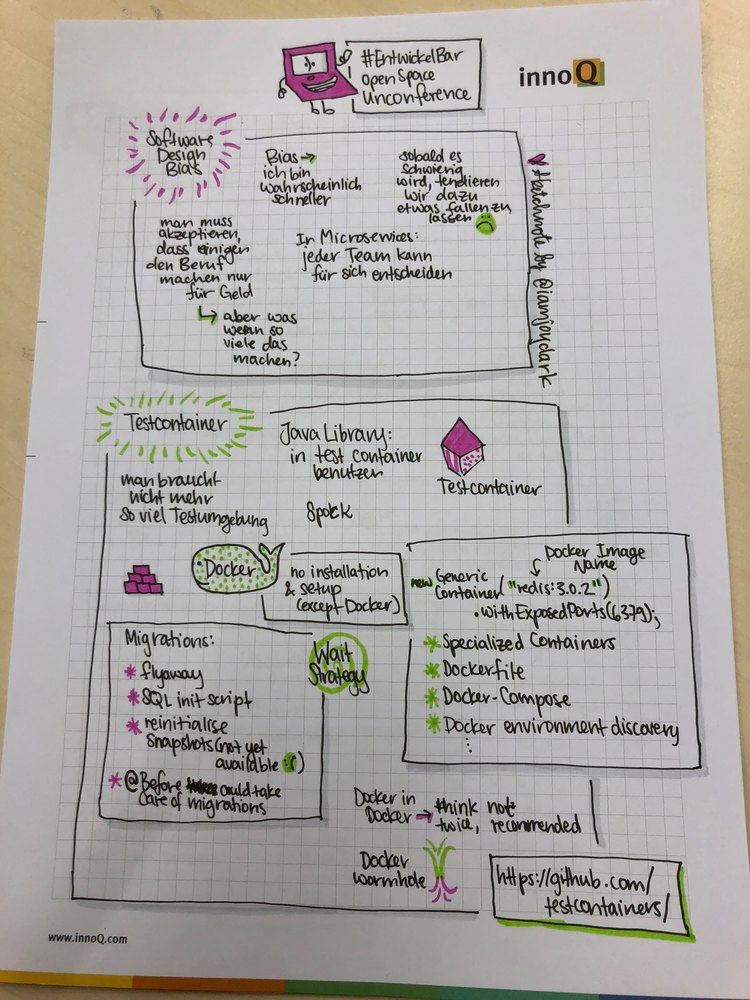 #EntwickelBar
openSpace
Unconference
innoQ
Software
Design
Bias
Bias →
ich bin
wahrscheinlich
schneller
sobald es
schwierig
wird, tendieren
wir dazu
etwas fallen zu
lassen
man muss
akzeptieren,
dass einigen
den Beruf
machen nur
für Geld
↳ aber was
wenn so
viele das
machen?
In Microservices:
jeder Team kann
für sich entscheiden
♥ #batchnote by @iamjoydark
Testcontainer
Java Library:
in test container
benutzen
Testcontainer
man braucht
nicht mehr
so viel Testumgebung
Spock
Docker
no installation
& setup
(except Docker)
Docker Image
Name
new Generic
Container("redis:3.0.2")
.withExposedPorts(6379);
* Specialized Containers
* Dockerfile
* Docker-Compose
* Docker environment discovery
⋮
Migrations:
* flyaway
* SQL init script
* reinitialise
snapshots (not yet
available :( )
* @Before could take
care of migrations
Wait
Strategy
Docker in
Docker → think not
twice, recommended
Docker
wormhole
https://github.com/
testcontainers/
www.innoQ.com